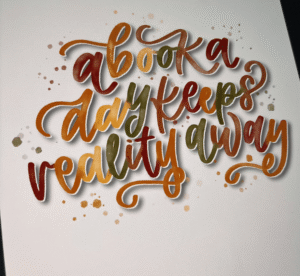 a book a
day keeps
reality away